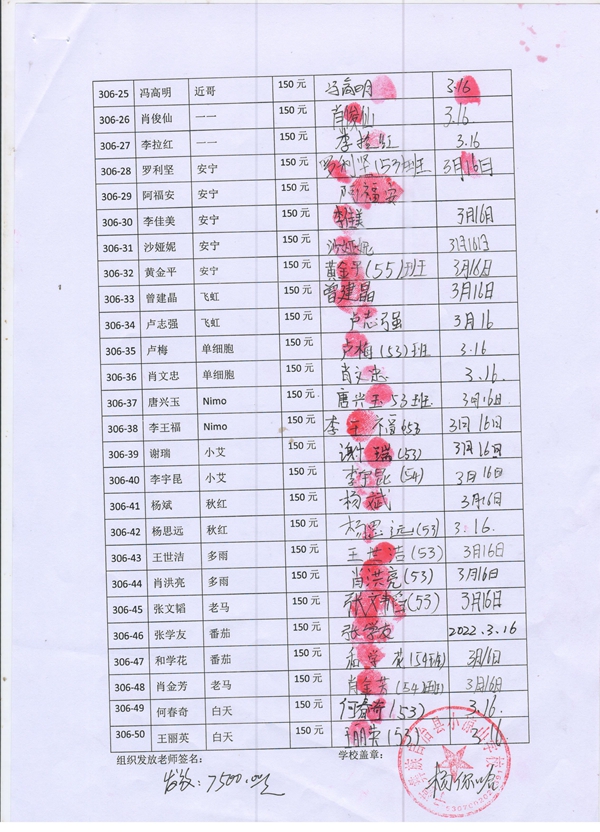 306-25 冯高明 近哥 150元 冯高明 3.16
306-26 肖俊仙 一一 150元 肖俊仙 3.16
306-27 李拉红 一一 150元 李拉红 3.16
306-28 罗利坚 安宁 150元 罗利坚(53)班班 3月16日
306-29 阿福安 安宁 150元 阿福安
306-30 李佳美 安宁 150元 3月16日
306-31 沙娅妮 安宁 150元 沙娅妮 3月16日
306-32 黄金平 安宁 150元 黄金平(55)班班 3月16日
306-33 曾建晶 飞虹 150元 曾建晶 3月16日
306-34 卢志强 飞虹 150元 卢志强 3月16
306-35 卢梅 单细胞 150元 卢梅(53)班 3.16
306-36 肖文忠 单细胞 150元 肖文忠 3.16.
306-37 唐兴玉 Nimo 150元 唐兴玉53班 3月16日
306-38 李王福 Nimo 150元 李王福 653 3月16日
306-39 谢瑞 小艾 150元 谢瑞(53) 3月16日
306-40 李宇昆 小艾 150元 李宇昆(54) 3月16日
306-41 杨斌 秋红 150元 杨斌 3月16日
306-42 杨思远 秋红 150元 杨思远(53) 3.16.
306-43 王世洁 多雨 150元 王世洁(53) 3月16日
306-44 肖洪亮 多雨 150元 肖洪亮(53) 3月16日
306-45 张文韬 老马 150元 张文韬(53) 3月16日
306-46 张学友 番茄 150元 张学友 2022.3.16
306-47 和学花 番茄 150元 和学花(54班) 3月16日
306-48 肖金芳 老马 150元 肖金芳(54)班 3月16日
306-49 何春奇 白天 150元 何春奇(53) 3.16.
306-50 王丽英 白天 150元 (53) 3.16
组织发放老师签名： 学校盖章：
发放：7500.00元